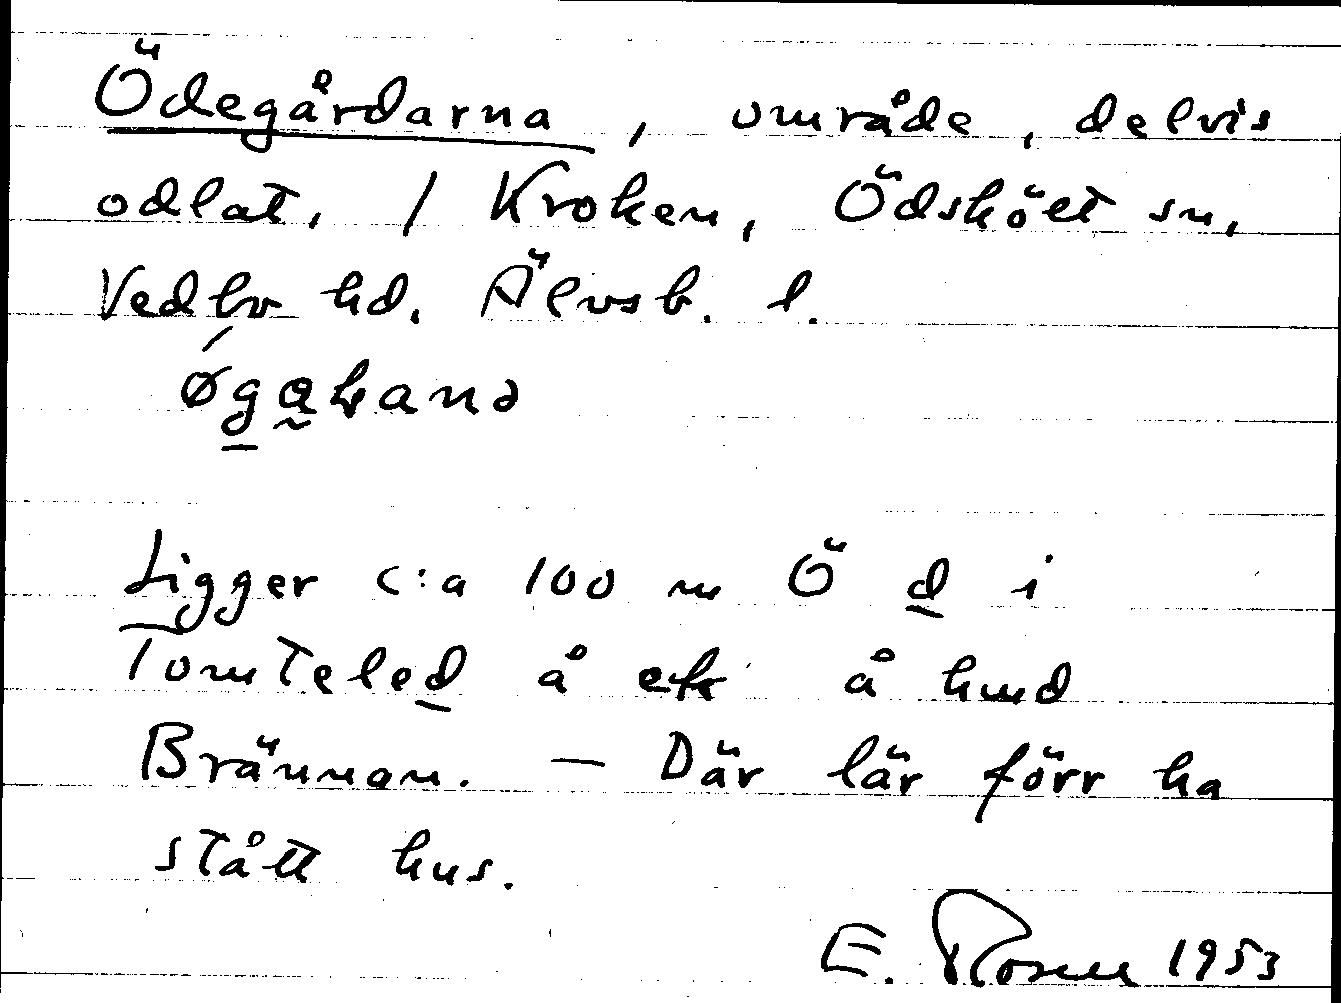 Ödegårdarna, område, delvis
odlat, / Kroken, Ödskölt sn,
Vedbo hd. Älvsb. l.
Ligger c:a 100 m Ö d i
Tomteled å ek å hmd
Brännan. — Där lär förr ha
stått hus.
E. Rosen 1953